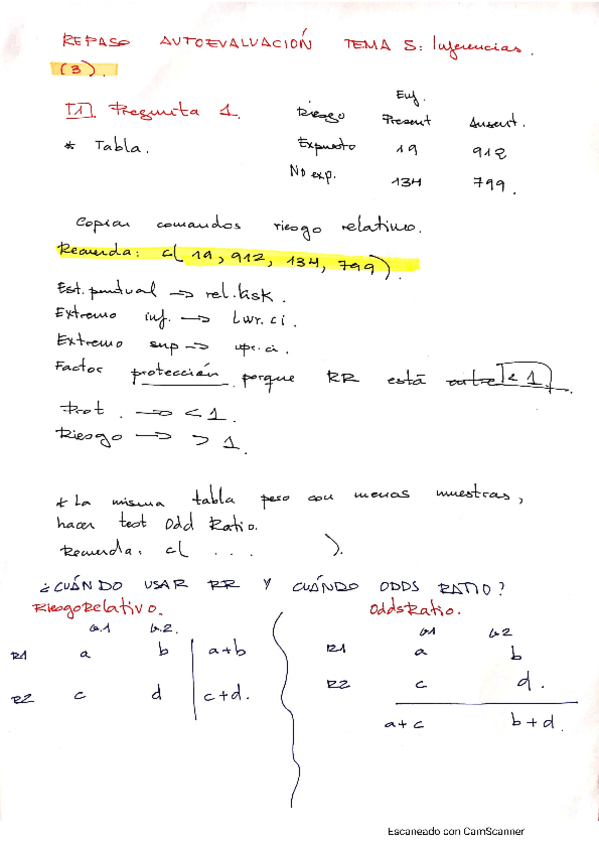 REPASO AUTOEVALUACIÓN TEMA 5: Inferencias.
(3).
[1]. Pregunta 1.
* Tabla.
Enf.
Riesgo Present Ausent.
Expuesto 19 912
No exp. 134 799.
Copiar comandos riesgo relativo.
Recuerda: c( 19, 912, 134, 799).
Est. puntual → rel.risk.
Extremo inf. → Lwr.ci.
Extremo sup → upr.ci.
Factor protección porque RR está < 1.
Prot. → < 1.
Riesgo → > 1.
* La misma tabla pero con menos muestras,
hacer test Odd Ratio.
Recuerda: c( ... ).
¿CUÁNDO USAR RR Y CUÁNDO ODDS RATIO?
Riesgo Relativo.
G.1 G.2.
R1 a b a+b
R2 c d c+d.
Odds Ratio.
G1 G2
R1 a b
R2 c d.
a+c b+d.
Escaneado con CamScanner